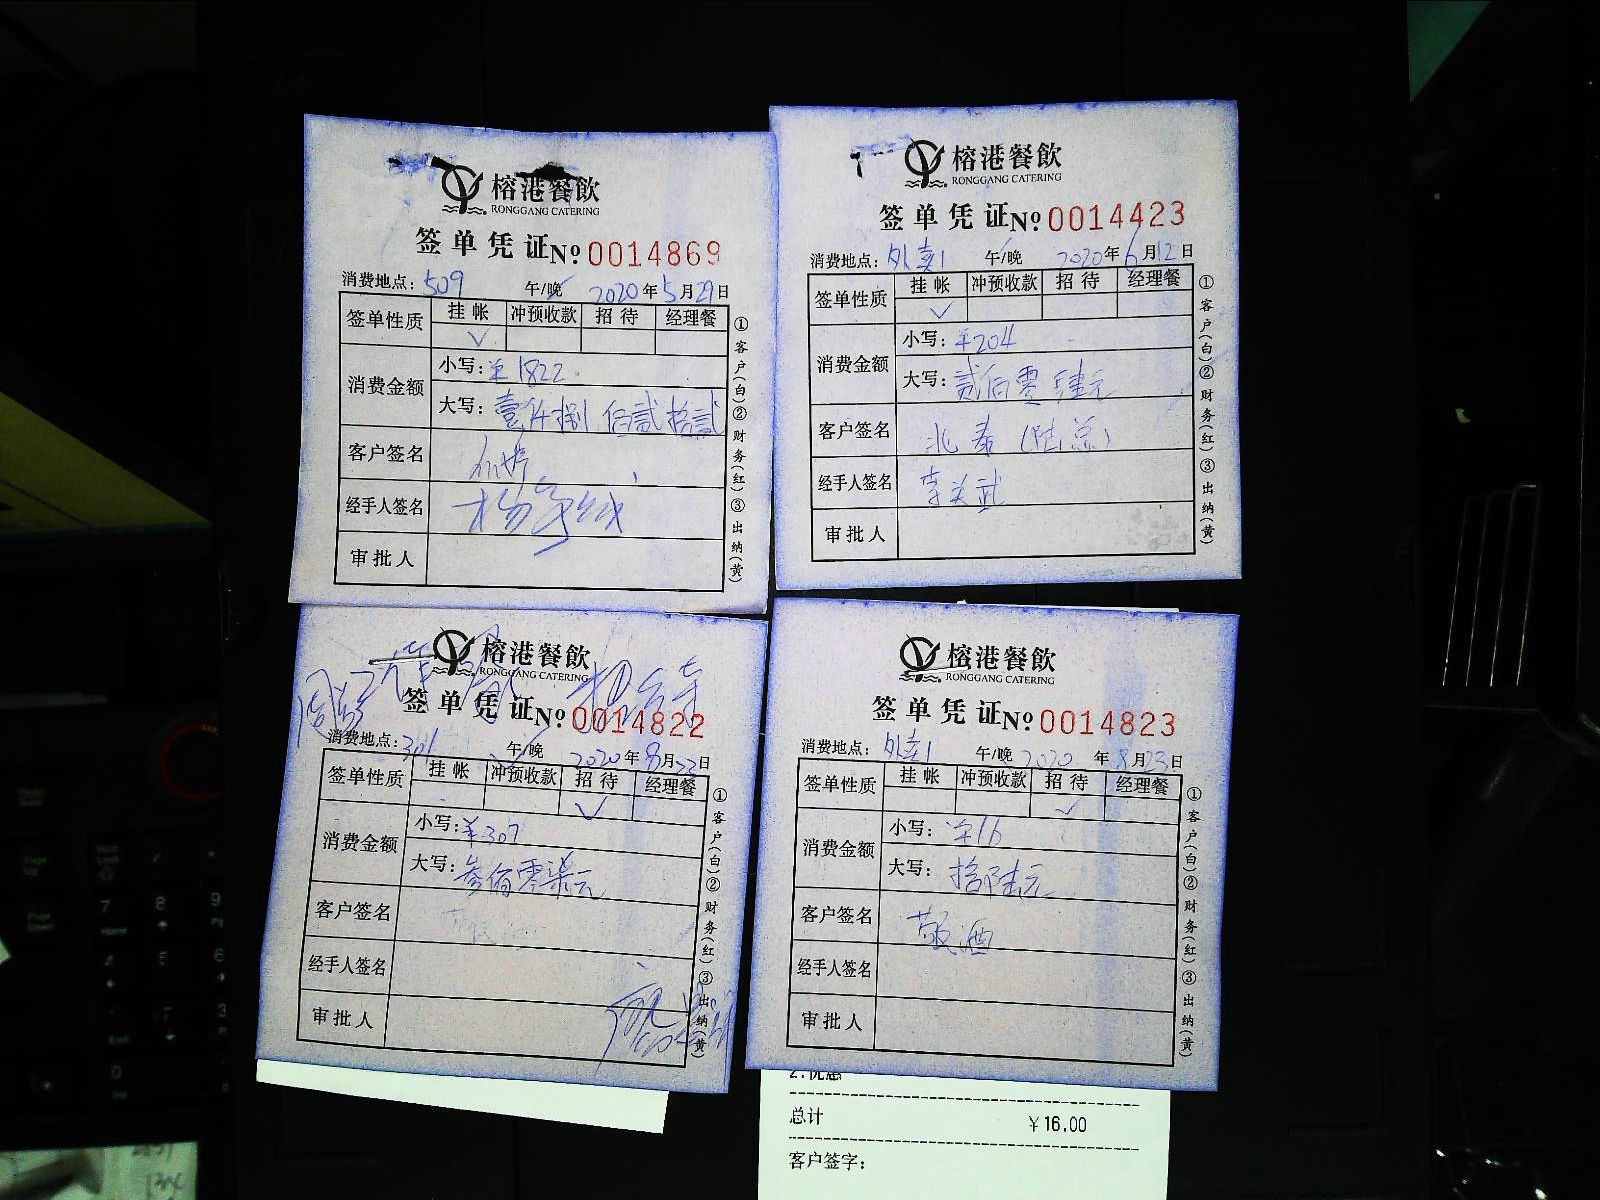 榕港餐飲
RONGGANG CATERING
签单凭证№0014869
消费地点：509 午/晚 2020年5月29日
签单性质 挂帐 冲预收款 招待 经理餐
✓
消费金额
小写：¥1822
大写：壹仟捌佰贰拾贰
客户签名
经手人签名
审批人
①客户(白)②财务(红)③出纳(黄)
榕港餐飲
RONGGANG CATERING
签单凭证№0014423
消费地点：外卖1 午/晚 2020年6月12日
签单性质 挂帐 冲预收款 招待 经理餐
✓
消费金额
小写：¥204
大写：贰佰零肆元
客户签名 北泰(陆总)
经手人签名 李关武
审批人
①客户(白)②财务(红)③出纳(黄)
榕港餐飲
RONGGANG CATERING
签单凭证№0014822
消费地点：301 午/晚 2020年8月22日
签单性质 挂帐 冲预收款 招待 经理餐
✓
消费金额
小写：¥307
大写：叁佰零柒元
客户签名
经手人签名
审批人
①客户(白)②财务(红)③出纳(黄)
榕港餐飲
RONGGANG CATERING
签单凭证№0014823
消费地点：外卖1 午/晚 2020年8月23日
签单性质 挂帐 冲预收款 招待 经理餐
✓
消费金额
小写：¥16
大写：拾陆元
客户签名 敬酒
经手人签名
审批人
①客户(白)②财务(红)③出纳(黄)
总计 ¥16.00
客户签字：